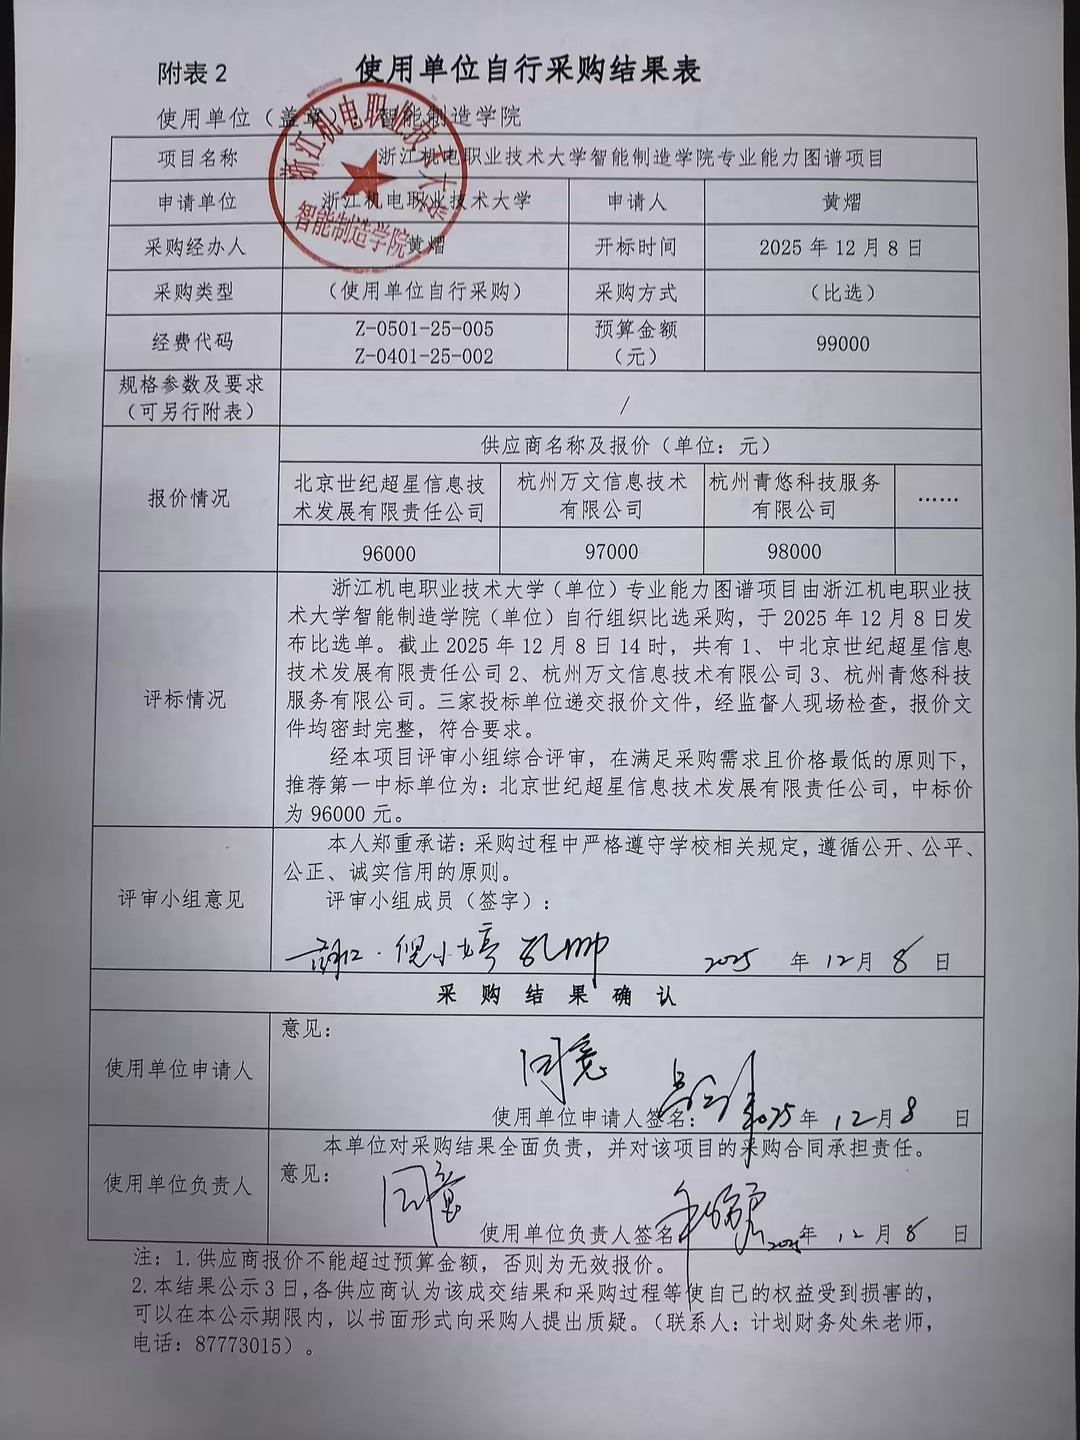 附表2 使用单位自行采购结果表
使用单位（盖章）：智能制造学院
浙江机电职业技术大学
智能制造学院
项目名称 浙江机电职业技术大学智能制造学院专业能力图谱项目
申请单位 浙江机电职业技术大学 申请人 黄熠
采购经办人 黄熠 开标时间 2025年12月8日
采购类型 （使用单位自行采购） 采购方式 （比选）
经费代码 Z-0501-25-005 预算金额 99000
Z-0401-25-002 （元）
规格参数及要求 /
（可另行附表）
报价情况 供应商名称及报价（单位：元）
北京世纪超星信息技 杭州万文信息技术 杭州青悠科技服务 ……
术发展有限责任公司 有限公司 有限公司
96000 97000 98000
评标情况
浙江机电职业技术大学（单位）专业能力图谱项目由浙江机电职业技
术大学智能制造学院（单位）自行组织比选采购，于2025年12月8日发
布比选单。截止2025年12月8日14时，共有1、中北京世纪超星信息
技术发展有限责任公司2、杭州万文信息技术有限公司3、杭州青悠科技
服务有限公司。三家投标单位递交报价文件，经监督人现场检查，报价文
件均密封完整，符合要求。
经本项目评审小组综合评审，在满足采购需求且价格最低的原则下，
推荐第一中标单位为：北京世纪超星信息技术发展有限责任公司，中标价
为96000元。
评审小组意见
本人郑重承诺：采购过程中严格遵守学校相关规定，遵循公开、公平、
公正、诚实信用的原则。
评审小组成员（签字）：
倪小婷 孔帅 2025年12月8日
采购结果确认
使用单位申请人
意见：
同意
使用单位申请人签名： 2025年12月8日
使用单位负责人
本单位对采购结果全面负责，并对该项目的采购合同承担责任。
意见：
同意
使用单位负责人签名 2025年12月8日
注：1.供应商报价不能超过预算金额，否则为无效报价。
2.本结果公示3日,各供应商认为该成交结果和采购过程等使自己的权益受到损害的，
可以在本公示期限内，以书面形式向采购人提出质疑。（联系人：计划财务处朱老师，
电话：87773015）。